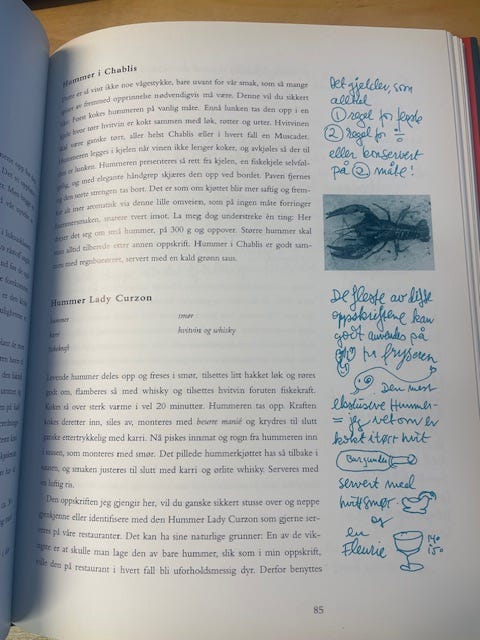 Hummer i Chablis
Dette er så visst ikke noe vågestykke, bare uvant for vår smak, som så mange
retter av fremmed opprinnelse nødvendigvis må være. Denne vil du sikkert
like. Først kokes hummeren på vanlig måte. Ennå lunken tas den opp i en
kjele hvor tørr hvitvin er kokt sammen med løk, røtter og urter. Hvitvinen
skal være ganske tørr, aller helst Chablis eller i hvert fall en Muscadet.
Hummeren legges i kjelen når vinen ikke lenger koker, og avkjøles så der til
den er lunken. Hummeren presenteres så rett fra kjelen, en fiskekjele selvføl-
gelig, og med elegante håndgrep skjæres den opp ved bordet. Paven fjernes
og den sorte strengen tas bort. Det er som om kjøttet blir mer saftig og frem-
for alt mer aromatisk via denne lille omveien, som på ingen måte forringer
hummersmaken, snarere tvert imot. La meg dog understreke én ting: Her
dreier det seg om små hummer, på 300 g og oppover. Større hummer skal
man alltid tilberede etter annen oppskrift. Hummer i Chablis er godt sam-
men med regnbueørret, servert med en kald grønn saus.
Hummer Lady Curzon
hummer smør
karri hvitvin og whisky
fiskekraft
Levende hummer deles opp og freses i smør, tilsettes litt hakket løk og røres
godt om, flamberes så med whisky og tilsettes hvitvin foruten fiskekraft.
Kokes så over sterk varme i vel 20 minutter. Hummeren tas opp. Kraften
kokes deretter inn, siles av, monteres med beurre manié og krydres til slutt
ganske ettertrykkelig med karri. Nå piskes innmat og rogn fra hummeren inn
i sausen, som monteres med smør. Det pillede hummerkjøttet has så tilbake i
sausen, og smaken justeres til slutt med karri og ørlite whisky. Serveres med
en luftig ris.
Den oppskriften jeg gjengir her, vil du ganske sikkert stusse over og neppe
gjenkjenne eller identifisere med den Hummer Lady Curzon som gjerne ser-
veres på våre restauranter. Det kan ha sine naturlige grunner: En av de vik-
tigste er at skulle man lage den av bare hummer, slik som i min oppskrift,
ville den på restaurant i hvert fall bli uforholdsmessig dyr. Derfor benyttes
85
Det gjelder, som
alltid
① regel for ferske
② regel for
eller konservert
på ② måte!
De fleste av disse
oppskriftene kan
godt anvendes på
fra fryseren
Den mest
eksklusive Hummer-
jeg vet om er
kokt i tørr hvit
Burgunder
servert med
hvitt smør.
og
en
Fleurie